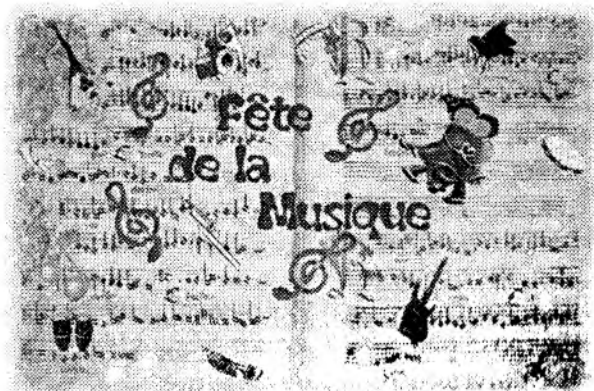 Fête
de la
Musique